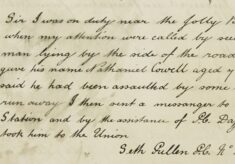 Sir I was on duty near the Golly
when my attention were called by see
man lying by the side of the road
gave his name Nathaniel Cowell aged
said he had been assaulted by some
run away I then sent a messanger to
Station and by the assistance of P.C. Day
took him to the Union
Seth Pullen P.C. No